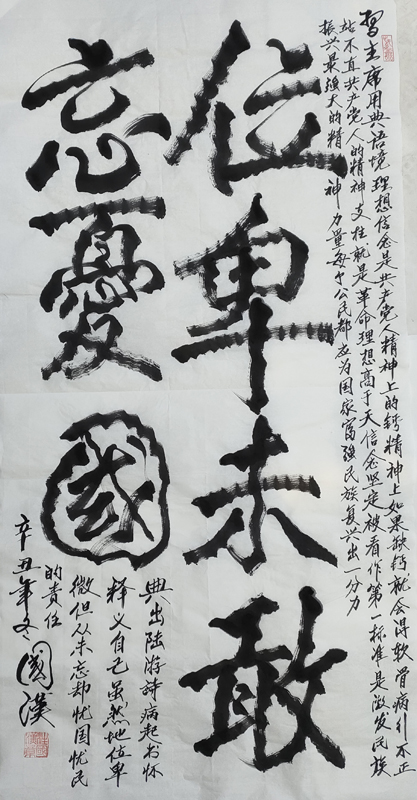 习主席用典语境理想信念是共产党人精神上的钙精神上如果缺钙就会得软骨病引不正
站不直共产党人的精神支柱就是革命理想高于天信念坚定被看作第一标准是激发民族
振兴最强大的精神力量每个公民都应为国家富强民族复兴出一分力
位卑未敢
忘忧國
典出陆游诗病起书怀
释义自己虽然地位卑
微但从未忘却忧国忧民
的责任
辛丑年冬國漢